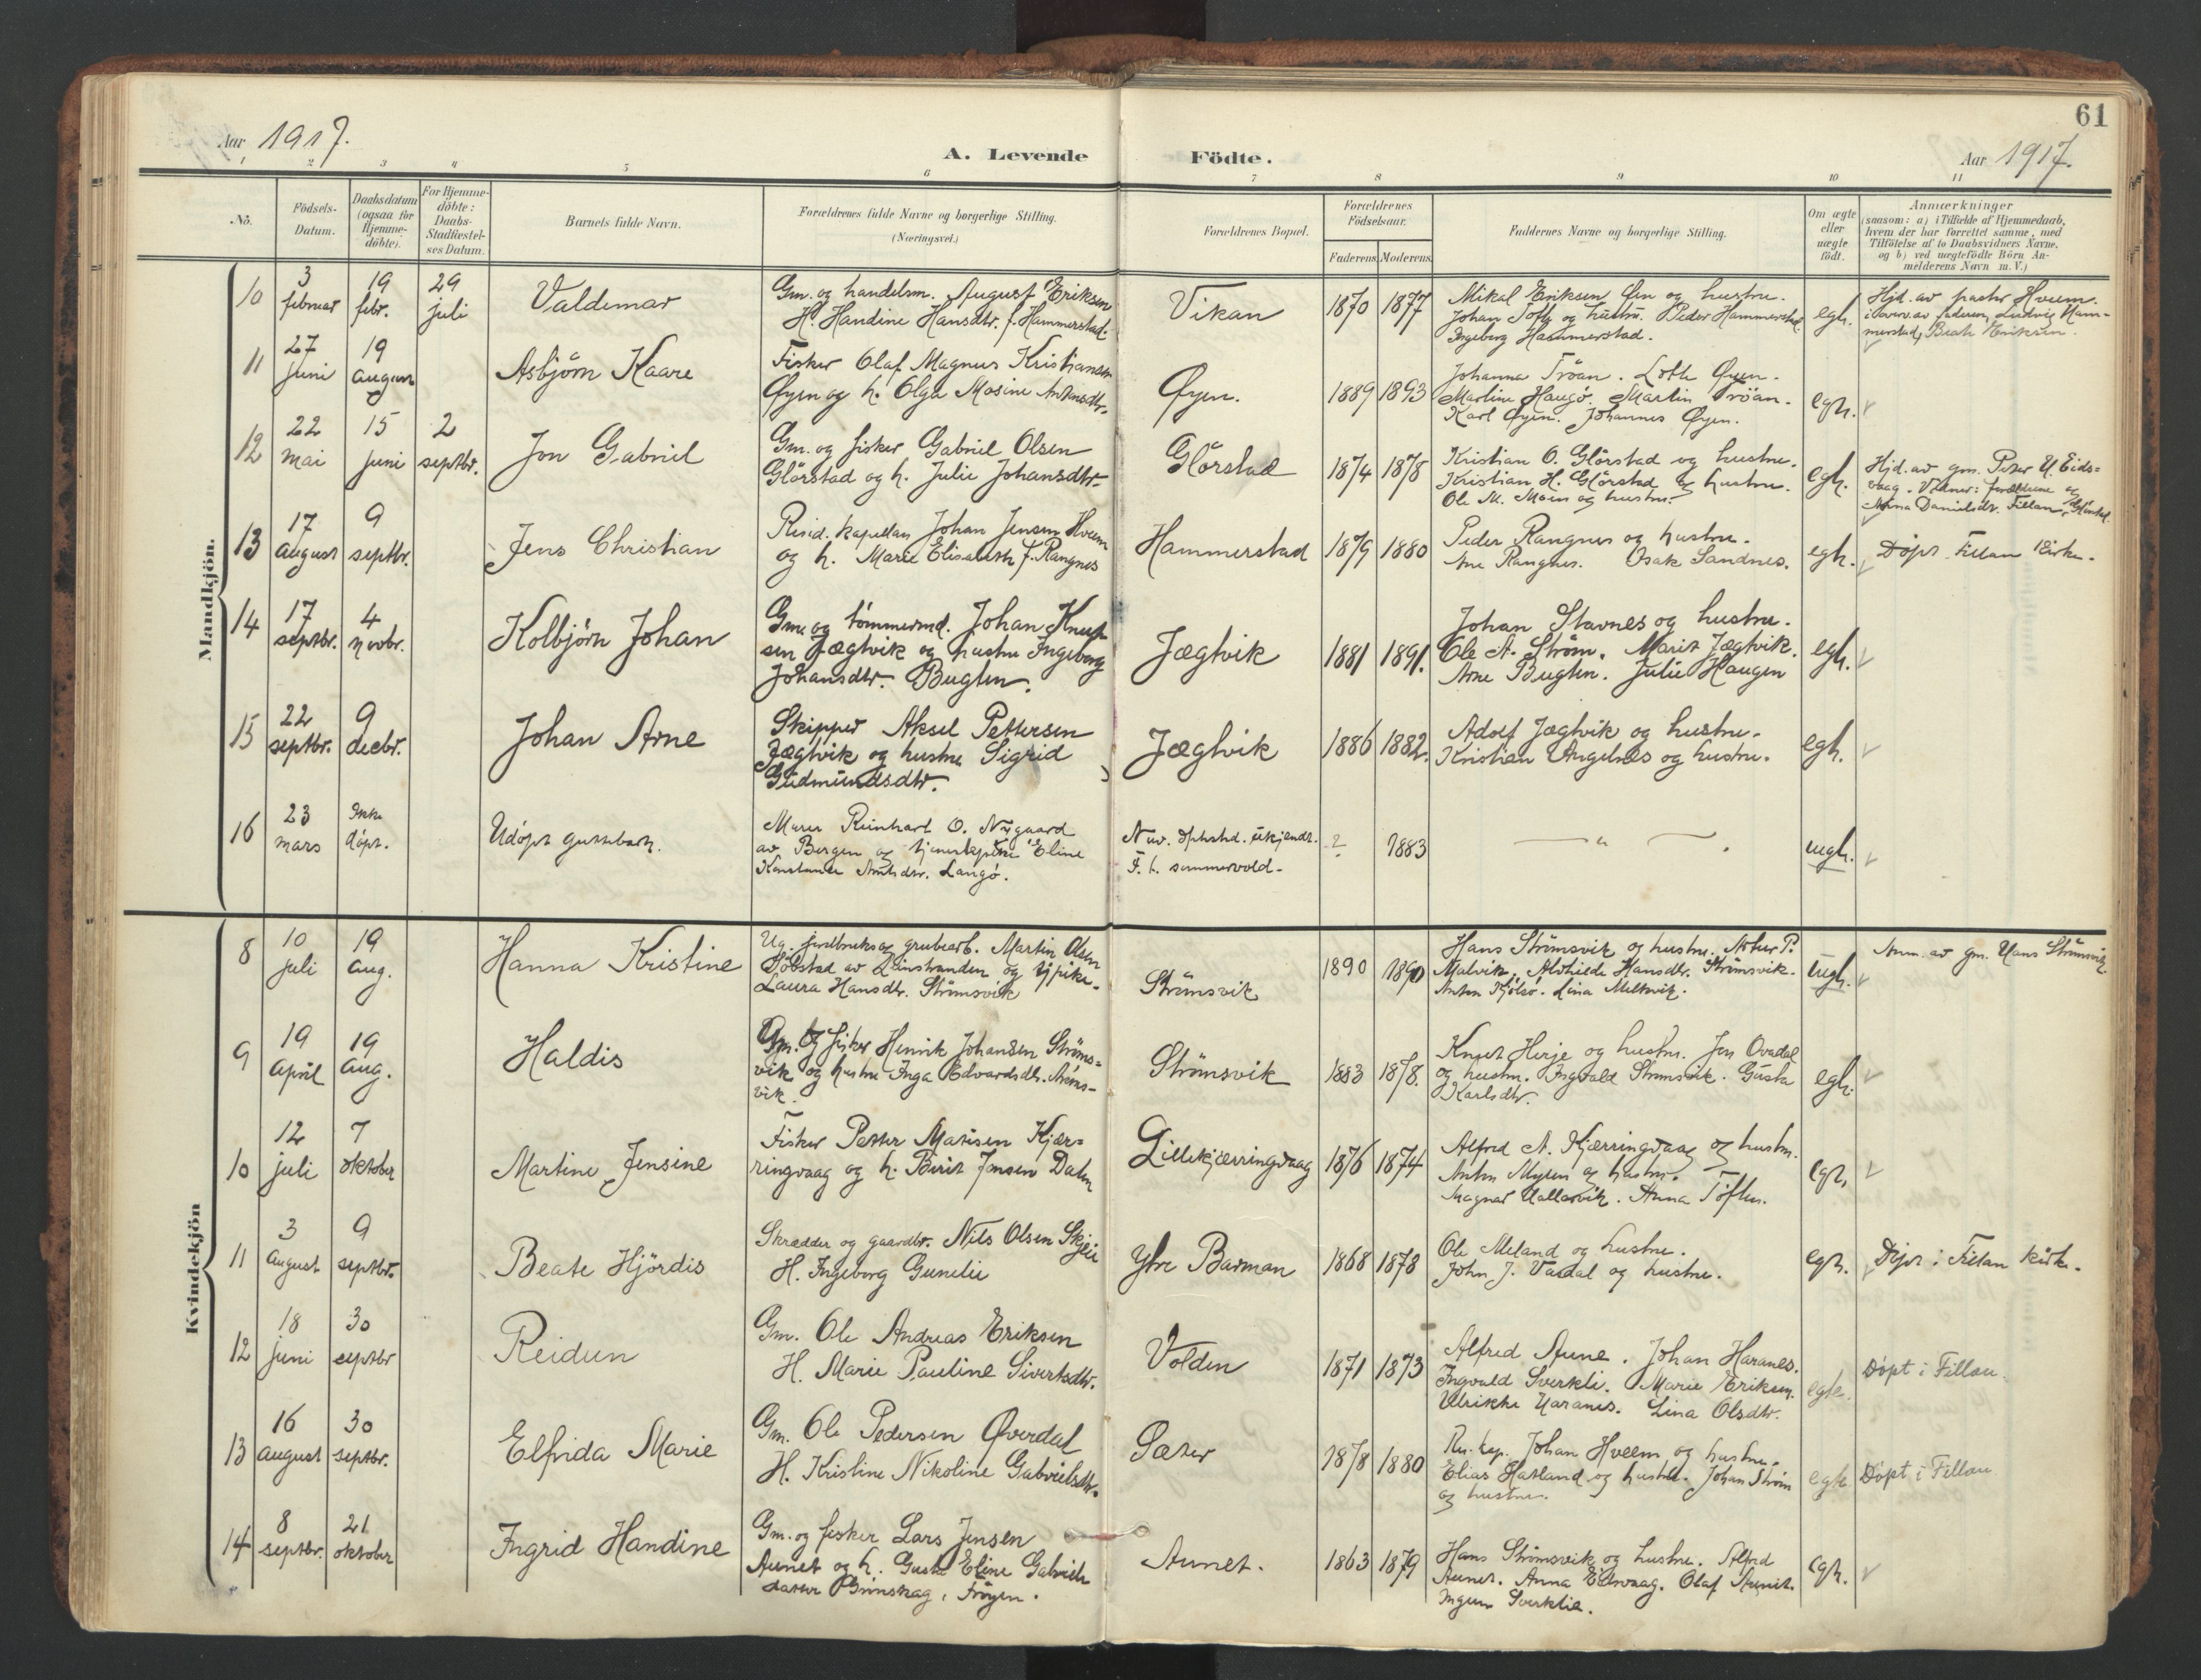 61
Aar 1917.
A. Levende Födte.
Aar 1917.
1 2 3 4 5 6 7 8 9 10 11
No.
Födsels-
Datum.
Daabsdatum
(ogsaa for
Hjemme-
döbte).
For Hjemme-
döbte:
Daabs-
Stadfæstel-
ses Datum.
Barnets fulde Navn.
Forældrenes fulde Navne og borgerlige Stilling.
(Næringsvei.)
Forældrenes Bopæl.
Forældrenes
Födselsaar.
Faderens. Moderens.
Faddernes Navne og borgerlige Stilling.
Om ægte
eller
uægte
födt.
Anmærkninger
(saasom: a) i Tilfælde af Hjemmedaab,
hvem der har forrettet samme, med
Tilföielse af to Daabsvidners Navne.
og b) ved uægtefödte Börn An-
melderens Navn m. V.)
Mandkjön.
10
3
februar
19
febr.
29
juli
Valdemar
Gm. og handelsm. August Eriksen
H. Handine Hansdtr. f. Hammerstad.
Vikan
1870 1877
Mikal Eriksen og hustru.
Johan og hustru. Peder Hammerstad
Ingeborg Hammerstad.
egt.
Hjd. av pastor Hveem.
av faderen, Ludvig Ham-
merstad, Beate Eriksen.
11
27
juni
19
august
Asbjörn Kaare
Fisker Olaf Magnus Kristiansen
Øyen og h. Olga Mosine Antonsdtr.
Øyen.
1889 1893
Johanna Tröan. Lotte Øyen.
Martine Haugö. Martin Tröan.
Karl Øyen. Johannes Øyen.
egt.
12
22
mai
15
juni
2
septbr.
Jon Gabriel
Gm. og fisker Gabriel Olsen
Glörstad og h. Julie Johansdtr.
Glörstad
1874 1878
Kristian O. Glörstad og hustru.
Kristian H. Glörstad og hustru.
Ole M. Moen og hustru.
egt.
Hjd. av gm. Peter U. Eids-
vaag. Vidner: forældrene og
Anna Danielsdtr. Fillan,
13
17
august
9
septbr.
Jens Christian
Resid. kapellan Johan Jensen Hveem
og h. Marie Elisabeth f. Rangnes
Hammerstad
1879 1880
Peder Rangnes og hustru.
Ane Rangnes. Isak Sandnes.
egt.
Döpt Fillan kirke.
14
17
septbr.
4
novbr.
Kolbjörn Johan
Gm. og tömmermd. Johan Knut-
sen Jægtvik og hustru Ingeborg
Johansdtr. Bugten.
Jægtvik
1881 1891.
Johan Stavnes og hustru.
Ole A. Ström. Marit Jægtvik.
Arne Bugten. Julie Haugen
egt.
15
22
septbr.
9
decbr.
Johan Arne
Skipper Aksel Pettersen
Jægtvik og hustru Sigrid
Gudmundsdtr.
Jægtvik
1886 1882.
Adolf Jægtvik og hustru.
Kristian Angelnes og hustru.
egt.
16
23
mars
Ikke
döpt.
Udöpt guttebarn.
Murer Reinhart O. Nygaard
av Bergen og tjenestepike Eline
Konstanse dtr. Langö.
Nuv. opholdst. ukjendt.
F. t. sommervold.
? 1883
— " —
uegt.
Kvindekjön
8
10
juli
19
aug.
Hanna Kristine
Ug. jordbruks og grubearb. Martin Olsen
Söbstad av Leinstranden og tj.pike
Laura Hansdtr. Strömsvik
Strömsvik
1890 1890
Hans Strömsvik og hustru. Artur P.
Malvik. Alvhilde Hansdtr. Strömsvik.
Anton Kjölsö. Lina Melkvik.
uegt.
Anm. av gm. Hans Strömsvik.
9
19
april
19
aug.
Haldis
Gm. og fisker Henrik Johansen Ströms-
vik og hustru Inga Edvardsdtr. Ströms-
vik.
Strömsvik
1883 1878.
Knut Herje og hustru. Jon Ovadal
og hustru. Ingvald Strömsvik. Gusta
Karlsdtr.
egt.
10
12
juli
7
oktober
Martine Jensine
Fisker Petter Matisen Kjær-
ringvaag og h. Berit Jensen Dalen
Lillekjærringvaag
1876 1874
Alfred A. Kjærringvaag og hustru.
Anton Myren og hustru.
Magnar Hallarvik. Anna Töften.
egt.
11
3
august
9
septbr.
Beate Hjördis
Skrædder og gaardbr. Nils Olsen Skjei
H. Ingeborg Gunelie
Ytre Barman
1868 1878
Ole Meland og hustru.
John J. Vardal og hustru.
egt.
Döpt i Fillan kirke.
12
18
juni
30
septbr
Reidun
Gm. Ole Andreas Eriksen
H. Marie Pauline Sivertsdtr.
Volden
1871 1873
Alfred Aune. Johan Haranes.
Ingvald Sverkli. Marie Eriksen.
Ulrikke Haranes. Lina Olsdtr.
egte.
Döpt i Fillan.
13
16
august
30
septbr.
Elfrida Marie
Gm. Ole Pedersen Øverdal
H. Kristine Nikoline Gabrielsdtr.
Sæter
1878 1880
Res. kap. Johan Hveem og hustru.
Elias Hatland og hustru. Johan Ström
og hustru.
egte
Döpt i Fillan.
14
8
septbr.
21
oktober
Ingrid Handine
Gm. og fisker Lars Jensen
Aunet og h. Gusta Eline Gabriels
datter Grönskag, Fröyen.
Aunet.
1863 1879
Hans Strömsvik og hustru. Alfred
Aunet. Anna Eidsvaag. Olaf Aunet.
Sverklie.
egt.